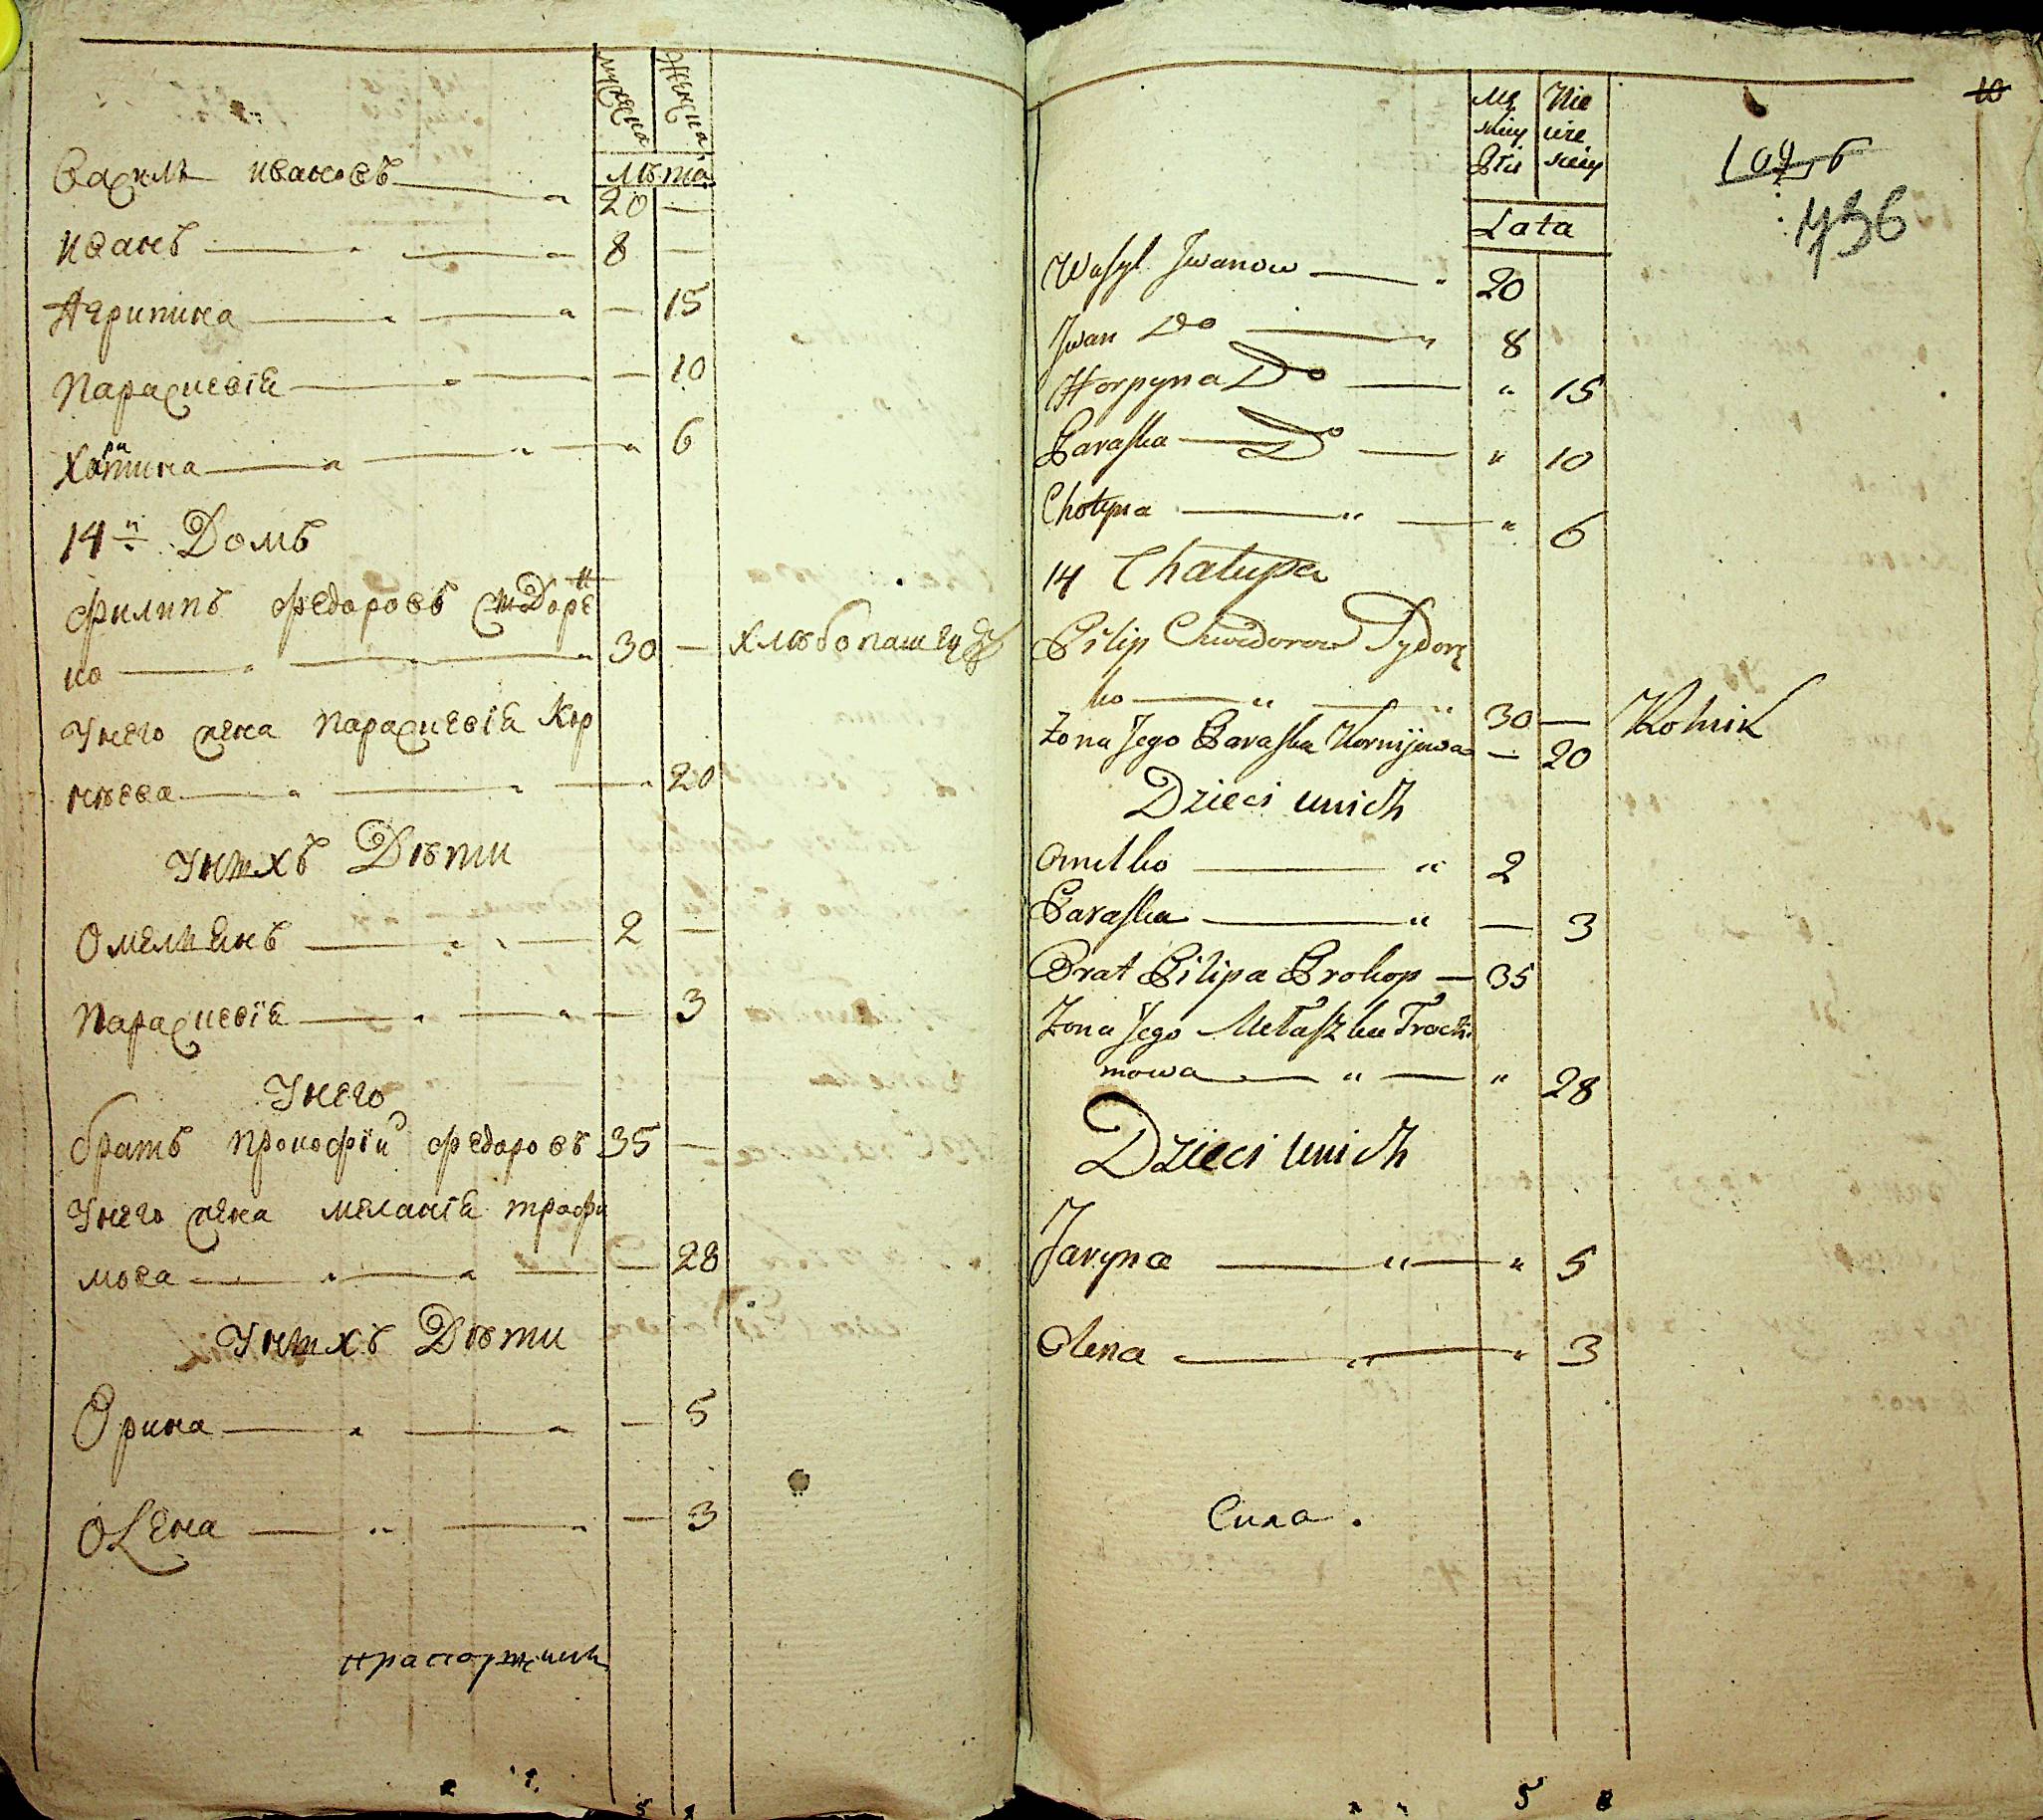 мужеска женска
лѣта
Василь ивановъ 20 —
иванъ 8 —
Агрипина — 15
Парасковія — 10
Хари
тина — 6
14й Домъ
филипъ федоровъ Сидорен
ко 30 — хлѣбопашецъ
У него жена Парасковія Кор
нѣева 20
У нихъ Дѣти
Омелянъ 2 —
Парасковія — 3
У него
братъ Прокофій федоровъ 35 —
У него жена меланія трофи
мова — 28
У нихъ Дѣти
Орина — 5
Олена — 3
прапорщикъ
10
736
Lata
Wasyl Jwanow 20
Jwan Do 8
Horpyna Do " 15
Paraska Do " 10
Chotyna " 6
14 Chałupa
Pilip Chwedorow Sydorę
ko 30 — Rolnik
Żona Jego Paraska Kornijewa — 20
Dzieci unich
Omelko 2
Paraska — 3
Brat Pilipa Prokop — 35
Żona Jego Mełaszka Troch
mowa " 28
Dzieci unich
Jaryna " 5
Olena " 3
Сила.
5 8